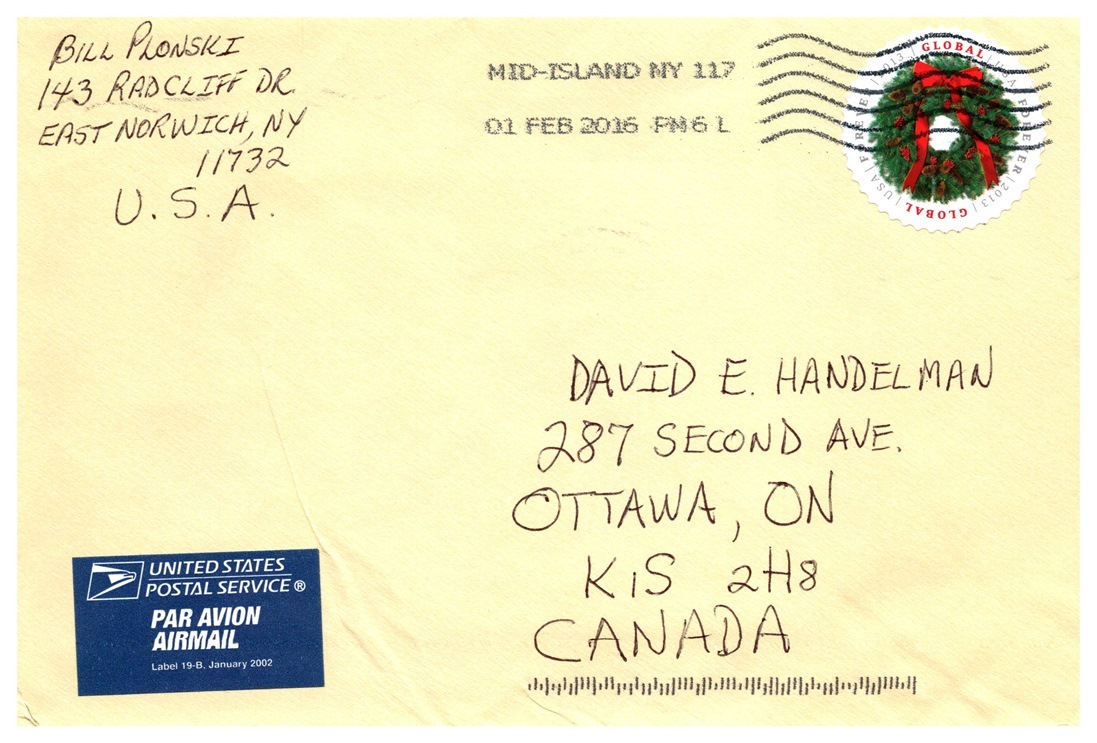 BILL PLONSKI
143 RADCLIFF DR.
EAST NORWICH, NY
11732
U.S.A.
MID-ISLAND NY 117
01 FEB 2016 PM 6 L
GLOBAL | USA FOREVER | 2013 | GLOBAL | USA FOREVER | 2013 |
DAVID E. HANDELMAN
287 SECOND AVE.
OTTAWA, ON
K1S 2H8
CANADA
UNITED STATES
POSTAL SERVICE®
PAR AVION
AIRMAIL
Label 19-B, January 2002